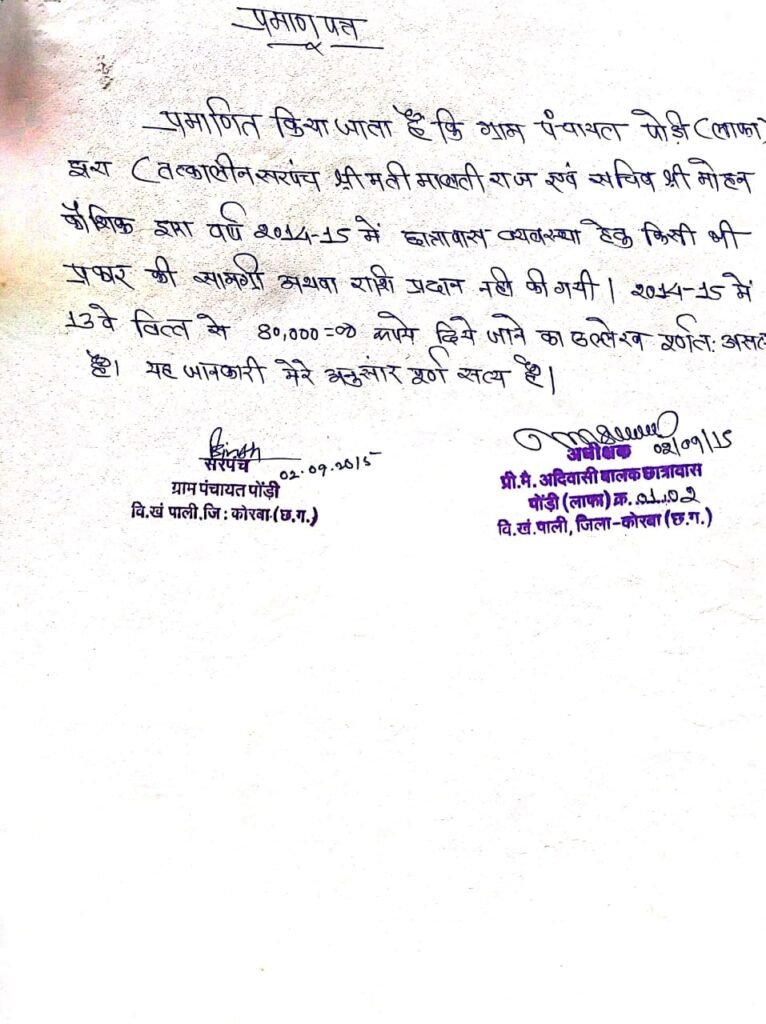 प्रमाण पत्र
प्रमाणित किया जाता है कि ग्राम पंचायत पोड़ी (लाफा)
द्वारा (तत्कालीन सरपंच श्री मती मालती राज एवं सचिव श्री मोहन
कौशिक द्वारा वर्ष 2014-15 में छात्रावास व्यवस्था हेतु किसी भी
प्रकार की सामग्री अथवा राशि प्रदान नही की गयी। 2014-15 में
13वे वित्त से 80,000=00 रूपये दिये जाने का उल्लेख पूर्णत: असत्
है। यह जानकारी मेरे अनुसार पूर्ण सत्य है।
सरपंच 02.09.2015
ग्राम पंचायत पोंड़ी
वि.खं पाली.जि: कोरबा.(छ.ग.)
02/09/15
अधीक्षक
प्री.मै. अदिवासी बालक छात्रावास
पोंड़ी (लाफा) क्र. 01.02
वि.खं.पाली, जिला-कोरबा (छ.ग.)